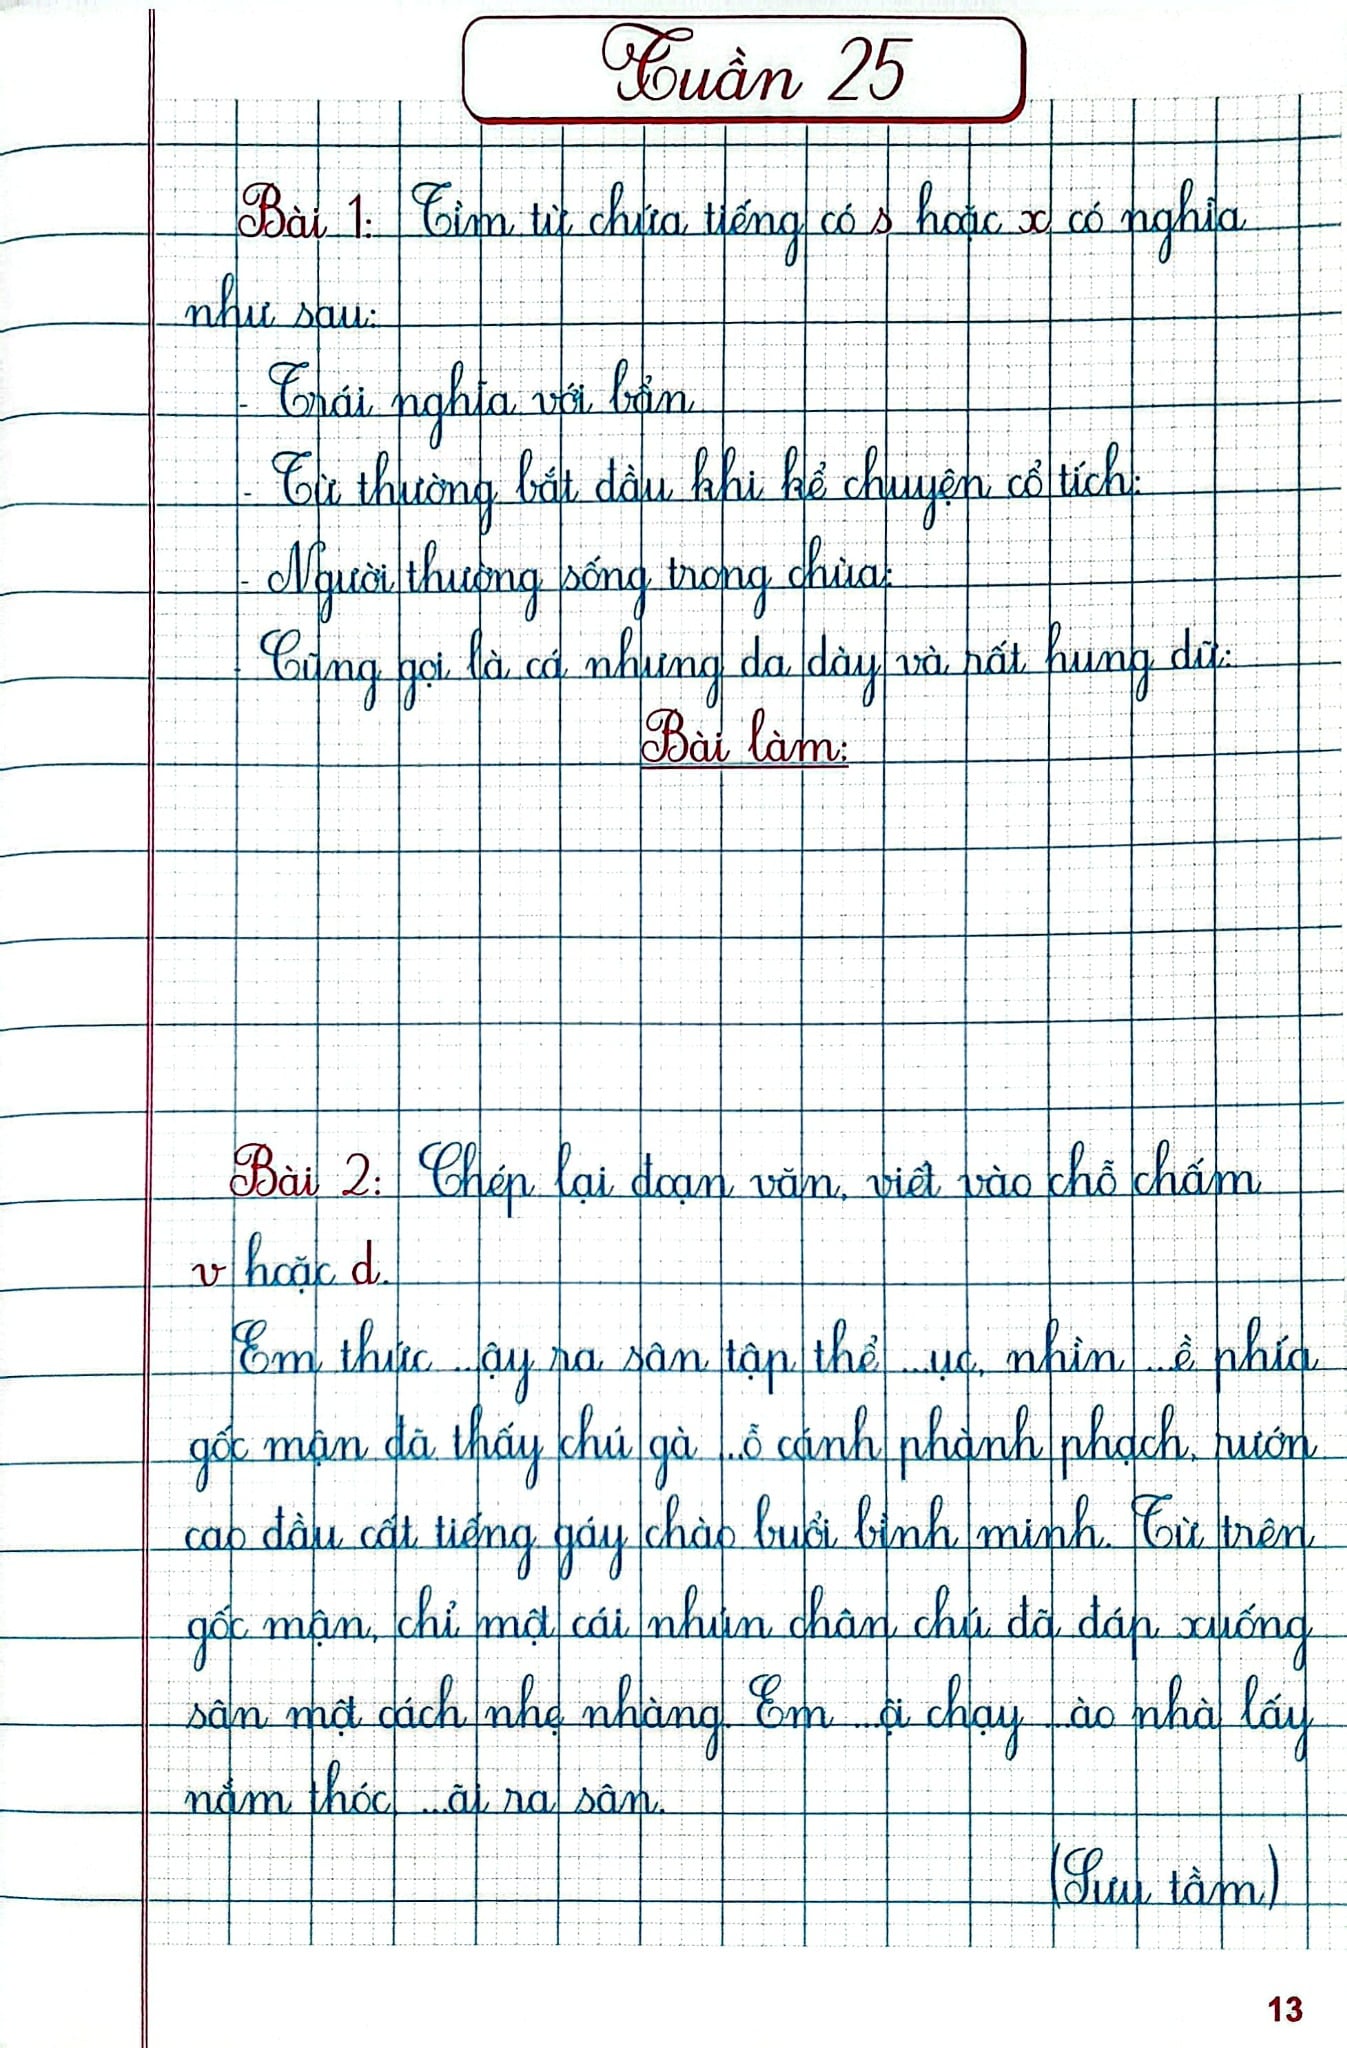 Tuần 25
Bài 1: Tìm từ chứa tiếng có s hoặc x có nghĩa
như sau:
- Trái nghĩa với bẩn
- Từ thường bắt đầu khi kể chuyện cổ tích:
- Người thường sống trong chùa:
- Cũng gọi là cá nhưng da dày và rất hung dữ:
Bài làm:
Bài 2: Chép lại đoạn văn, viết vào chỗ chấm
v hoặc d.
Em thức ...ậy ra sân tập thể ...ục, nhìn ...ề phía
gốc mận đã thấy chú gà ...ỗ cánh phành phạch, rướn
cao đầu cất tiếng gáy chào buổi bình minh. Từ trên
gốc mận, chỉ một cái nhún chân chú đã đáp xuống
sân một cách nhẹ nhàng. Em ...ội chạy ...ào nhà lấy
nắm thóc ...ãi ra sân.
(Sưu tầm)
13